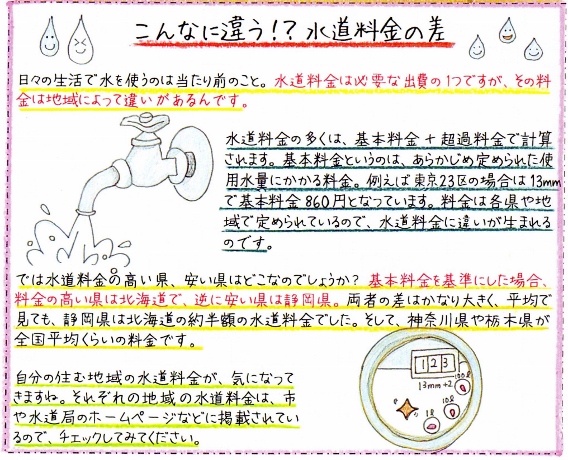 こんなに違う!? 水道料金の差
日々の生活で水を使うのは当たり前のこと。水道料金は必要な出費の1つですが、その料
金は地域によって違いがあるんです。
水道料金の多くは、基本料金+超過料金で計算
されます。基本料金というのは、あらかじめ定められた使
用水量にかかる料金。例えば東京23区の場合は13mm
で基本料金860円となっています。料金は各県や地
域で定められているので、水道料金に違いが生まれる
のです。
では水道料金の高い県、安い県はどこなのでしょうか?基本料金を基準にした場合、
料金の高い県は北海道で、逆に安い県は静岡県。両者の差はかなり大きく、平均で
見ても、静岡県は北海道の約半額の水道料金でした。そして、神奈川県や栃木県が
全国平均くらいの料金です。
123
13mm+2
100ℓ
10ℓ
1ℓ
自分の住む地域の水道料金が、気になって
きますね。それぞれの地域の水道料金は、市
や水道局のホームページなどに掲載されてい
るので、チェックしてみてください。